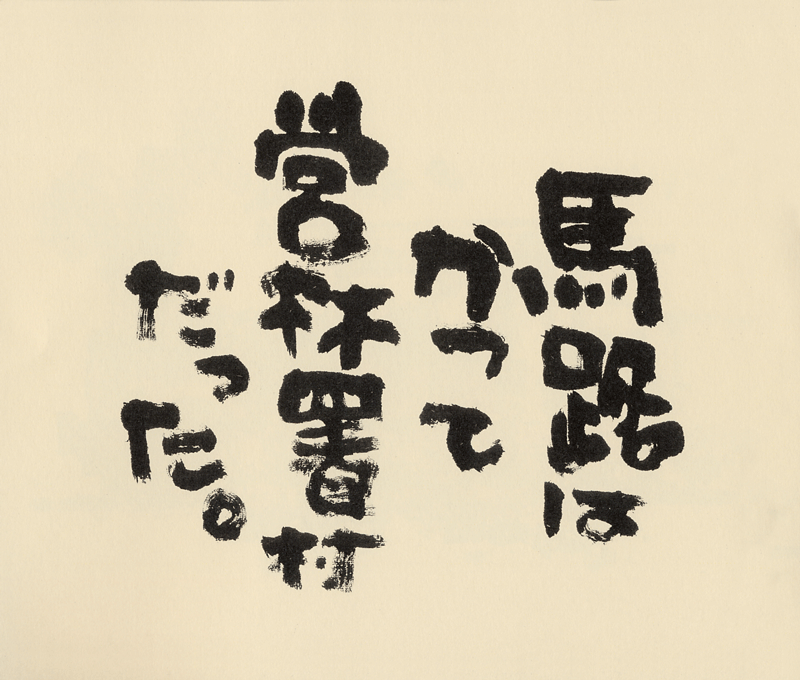 馬路は
かつて
営林署村
だった。